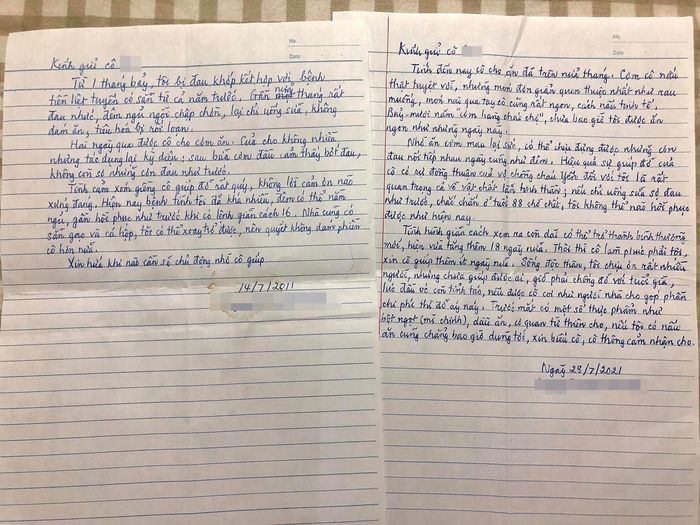 No.
Date
Kính gửi cô
Từ 1 tháng bảy, tôi bị đau khớp kết hợp với bệnh
tiền liệt tuyến có sẵn từ cả năm trước. Gần nửa tháng rất
đau nhức, đêm ngủ ngồi chập chờn, lại chỉ uống sữa, không
dám ăn, tiêu hóa bị rối loạn.
Hai ngày qua được cô cho cơm ăn. Quà cho không nhiều
nhưng tác dụng lại kỳ diệu; sau bữa cơm đầu cảm thấy bớt đau,
không còn sợ những cơn đau như trước.
Tình cảm xóm giềng cô giúp đỡ rất quý, không lời cảm ơn nào
xứng đáng. Hiện nay bệnh tình tôi đã khá nhiều, đêm có thể nằm
ngủ, gần hồi phục như trước khi có lệnh giãn cách 16. Nhà cũng có
sẵn gạo và cá hộp, tôi có thể xoay trở được, nên quyết không dám phiền
cô hơn nữa.
Xin hứa khi nào cần sẽ chủ động nhờ cô giúp.
14/7/2011
No.
Date
Kính gửi cô
Tính đến nay cô cho ăn đã trên nửa tháng. Cơm cô nấu
thật tuyệt vời, những món đơn giản quen thuộc nhất như rau
muống, mới nấu qua tay cô cũng rất ngon, cách nấu tinh tế.
Bảy mươi năm "cơm hàng cháo chợ", chưa bao giờ tôi được ăn
ngon như những ngày này.
Nhờ ăn cơm mau lại sức, có thể chịu đựng được những cơn
đau nối tiếp nhau ngày cũng như đêm. Hiệu quả sự giúp đỡ của
cô có sự đồng thuận của vợ chồng cháu Yến đối với tôi là rất
quan trọng cả về vật chất lẫn tinh thần; nếu chỉ uống sữa sợ đau
như trước, chắc chắn ở tuổi 88 chờ chết, tôi không thể nào hồi phục
được như hiện nay.
Tình hình giãn cách xem ra còn dài có thể trở thành bình thường
mới, hiện vừa tăng thêm 18 ngày nữa. Thôi thì cô làm phúc phải tội,
xin cô giúp thêm ít ngày nữa. Sống độc thân, tôi chịu ơn rất nhiều
người, nhưng chưa giúp được ai, giờ phải chống đỡ với tuổi già,
lúc đầu vô còn tỉnh táo, nếu được cô coi như người nhà cho góp phần
chi phí thì đỡ áy náy. Trước mắt có một số thực phẩm như
bột ngọt (mì chính), dầu ăn, cơ quan từ thiện cho, nếu tôi có nấu
ăn cũng chẳng bao giờ dùng tới, xin biếu cô, cô thông cảm nhận cho.
Ngày 28/7/2021